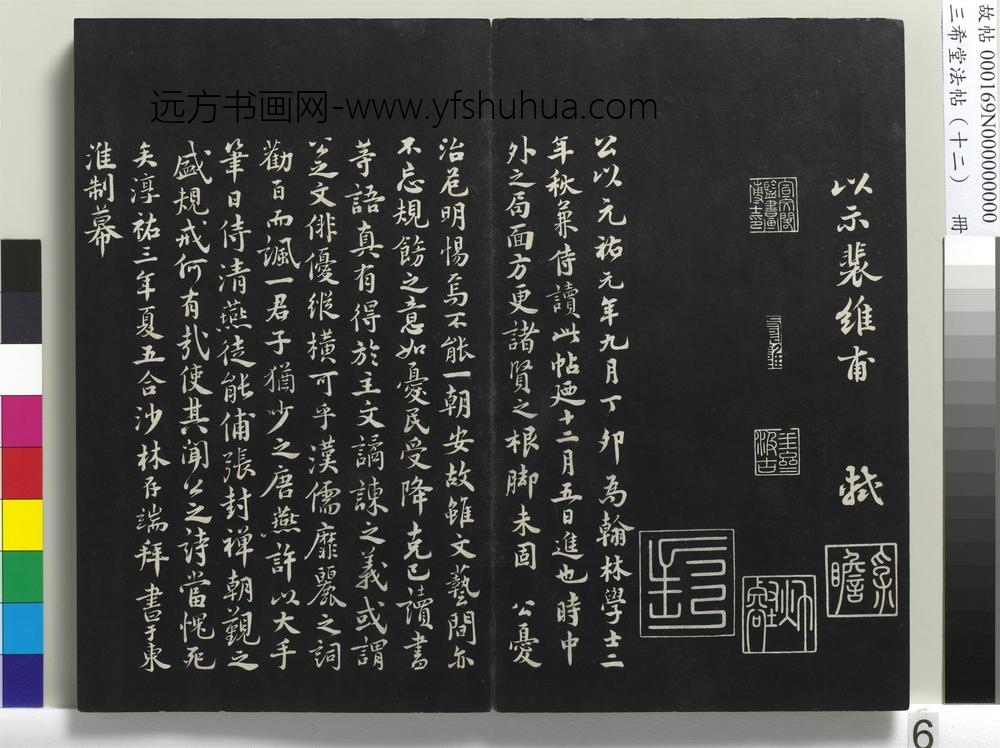 远方书画网-www.yfshuhua.com
故帖 000169N000000000
三希堂法帖（十二） 冊
以示裴維甫 軾
公以元祐元年九月丁卯為翰林學士二
年秋兼侍讀此帖迺十二月五日進也時中
外之局面方更諸賢之根脚未固 公憂
治危明惕焉不能一朝安故雖文藝間亦
不忘規飭之意如憂民受降克己讀書
等語真有得於主文譎諫之義或謂
公之文俳優縱橫可乎漢儒靡麗之詞
勸百而諷一君子猶少之唐燕許以大手
筆日侍清燕徒能鋪張封禪朝覲之
盛規戒何有哉使其聞公之詩當愧死
矣淳祐三年夏五合沙林存端拜書于東
淮制幕
6